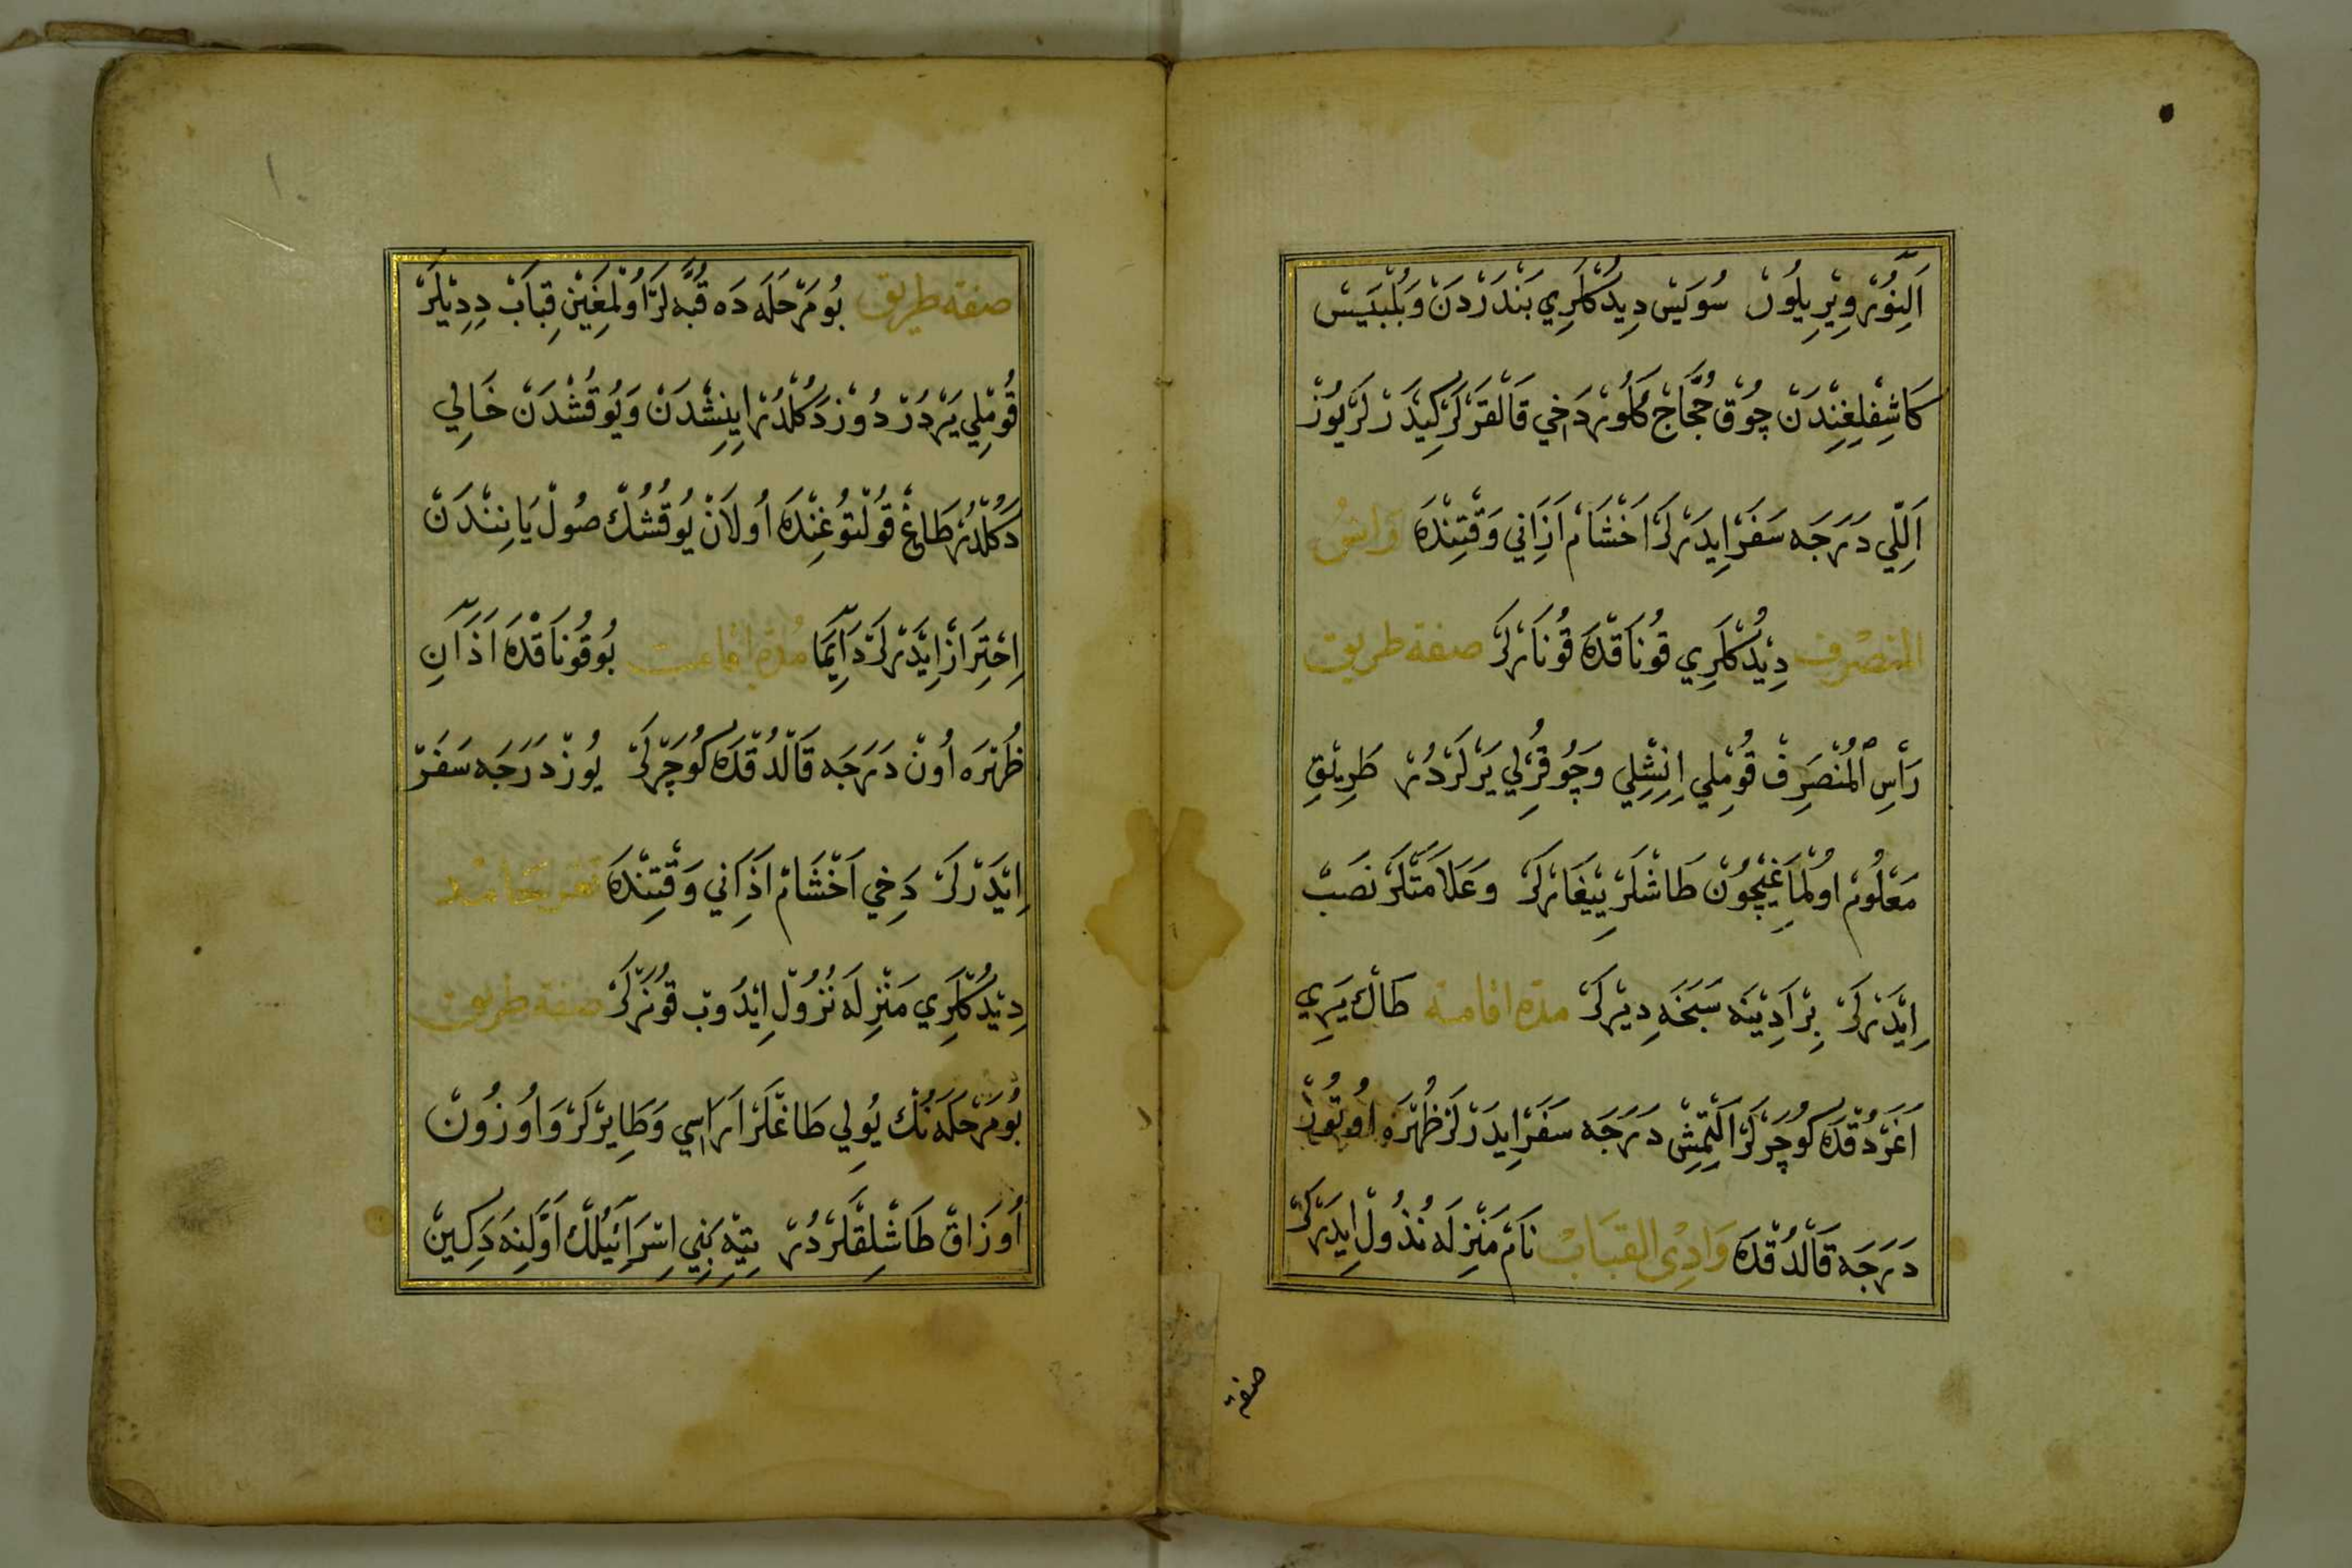 اَلِنُورْ وِيْرِيلُورْ سُوَيْس دِيدُكْلَرِي بَنْدَرْدَنْ وَبُلْبَيِسْ
كَاشِفْلِغِنْدَنْ چُوقْ حُجَّاجْ كَلُورْ دَخِي قَالْقَرْلَرْ كِيدَرْلَرْ يُوزْ
اَللِّي دَرَجَه سَفَرْ اِيدَرْلَرْ اَخْشَامْ اَذَانِي وَقْتِنْدَه وَاسُ
المنصْرِف دِيْدُكْلَرِي قُونَاقْدَه قُونَارْلَرْ صفة طريق
رَأْسِ الْمُنْصَرِفْ قُومْلِي اِنِشْلِي وَچُوقُرْلِي يَرْلَرْدُرْ طَرِيْقِ
مَعْلُومْ اُولْمَاغِيْچُونْ طَاشْلَرْ يِيغَارْلَرْ وَعَلَامَتْلَرْ نَصَبْ
اِيْدَرْلَرْ بِرْ اَدِيْنَه سَبَخَه دِيرْلَرْ مدّه اقامة طَاكْ يَرِي
اَغَرْدُقْدَه كُوچَرْلَرْ اَلْتِمِشْ دَرَجَه سَفَرْ اِيدَرْلَرْ ظُهْرَه اُوتُوزْ
دَرَجَه قَالْدُقْدَه وَادِى القبَابْ نَامْ مَنْزِلَه نُذُولْ اِيدَرْلَرْ
صفة
١٠
صفة طريق بُو مَرْحَلَه دَه قُبَّه لَرْ اُولْمَغِيْنْ قِبَابْ دِدِيْلَرْ
قُومْلِي يَرْدُرْ دُوزْ دَكُلْدُرْ اِينِشْدَنْ وَيُوقُشْدَنْ خَالِي
دَكُلْدُرْ طَاغْ قُولْتُوغِنْدَه اُولَانْ يُوقُشُكْ صُولْ يَانِنْدَنْ
اِحْتِرَازْ اِيْدَرْلَرْ دَآيِمَا مُدّهٔ اقامت بُو قُونَاقْدَه اَذَانِ
ظُهْرَه اُونْ دَرَجَه قَالْدُقْدَه كُوچَرْلَرْ يُوزْ دَرَجَه سَفَرْ
اِيْدَرْلَرْ دَخِي اَخْشَامْ اَذَانِي وَقْتِنْدَه
دِيْدُكْلَرِي مَنْزِلَه نُزُولْ اِيْدُوبْ قُونَرْلَرْ صفة طريق
بُو مَرْحَلَه نُكْ يُولِي طَاغْلَرْ اَرَاسِي وَطَايِرْلَرْ وَاُوزُونْ
اُوزَاقْ طَاشْلِقْلَرْدُرْ تِيْهِ بَنِي اِسْرَآئِيْلُكْ اَوَّلِنَه دَكِينْ